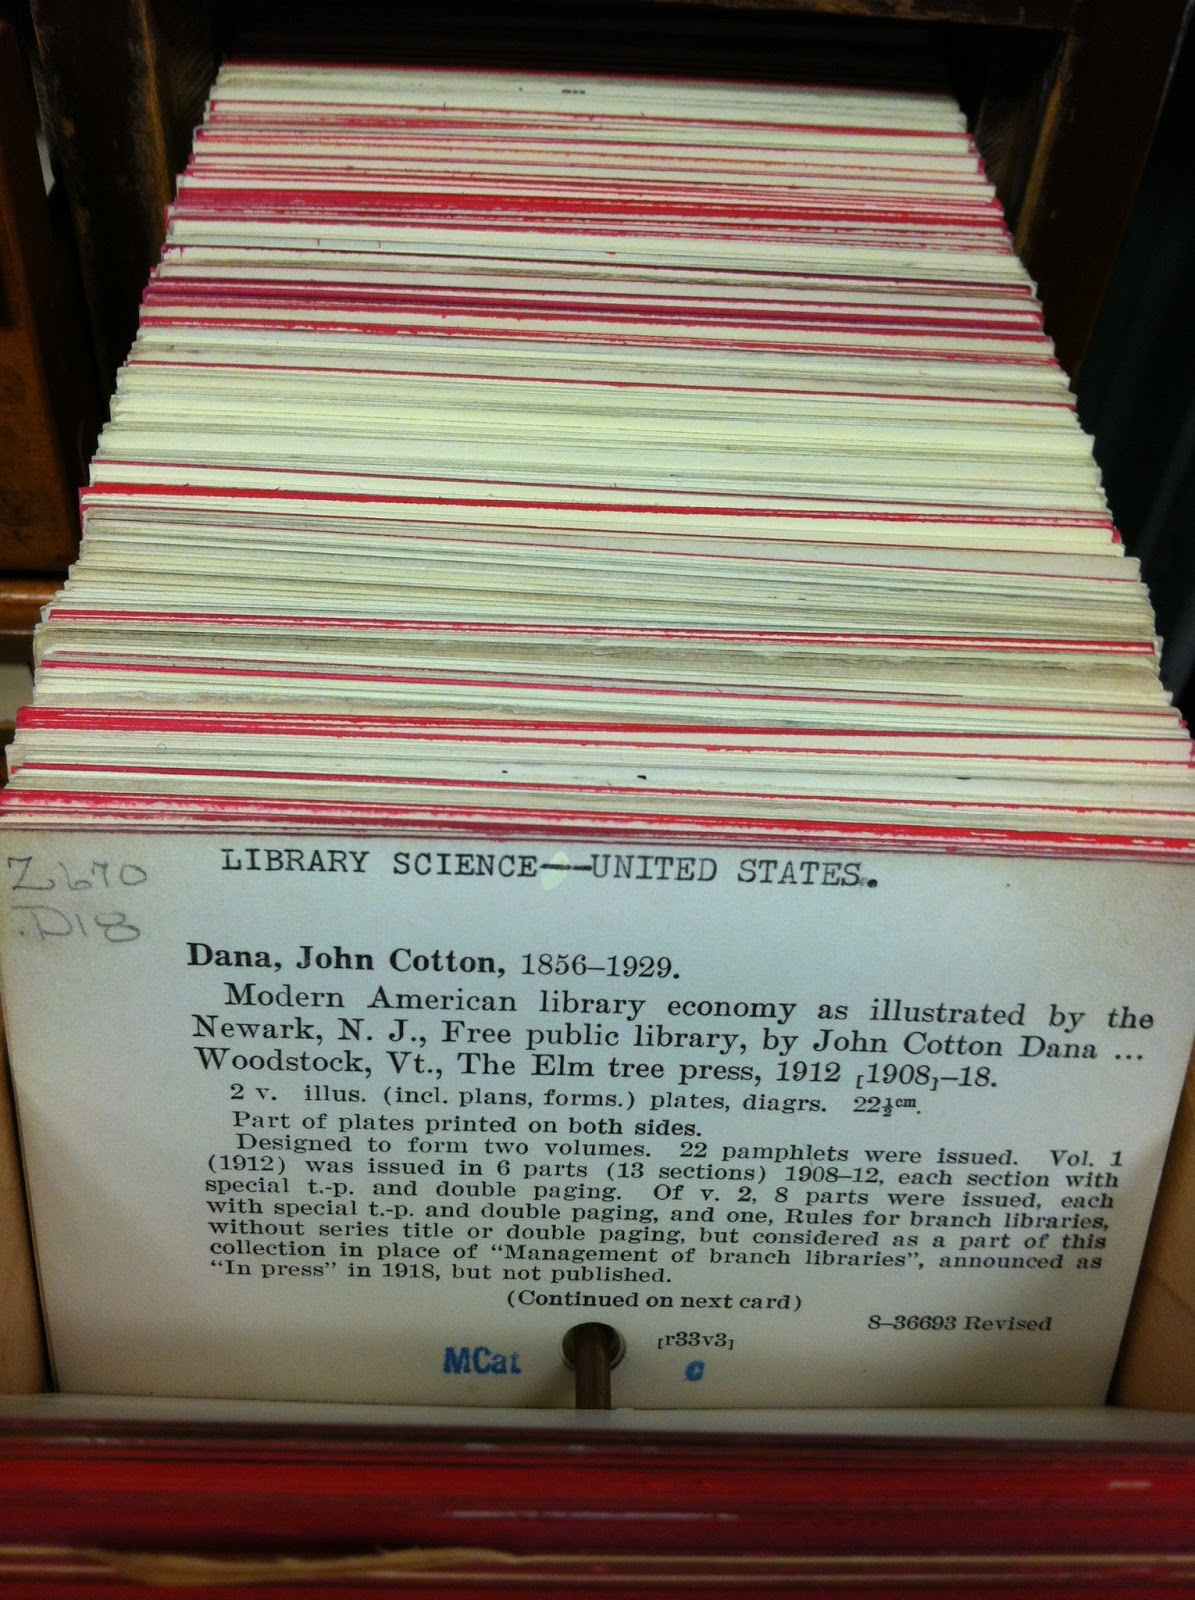 Z670
.D18
LIBRARY SCIENCE--UNITED STATES.
Dana, John Cotton, 1856–1929.
Modern American library economy as illustrated by the
Newark, N. J., Free public library, by John Cotton Dana ...
Woodstock, Vt., The Elm tree press, 1912 [1908]–18.
2 v. illus. (incl. plans, forms.) plates, diagrs. 22½ cm.
Part of plates printed on both sides.
Designed to form two volumes. 22 pamphlets were issued. Vol. 1
(1912) was issued in 6 parts (13 sections) 1908–12, each section with
special t.-p. and double paging. Of v. 2, 8 parts were issued, each
with special t.-p. and double paging, and one, Rules for branch libraries,
without series title or double paging, but considered as a part of this
collection in place of “Management of branch libraries”, announced as
“In press” in 1918, but not published.
(Continued on next card)
8–36693 Revised
[r33v3]
MCat c